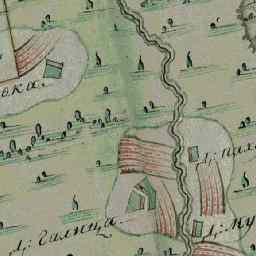 ова.
Д: Пал
Д: Галица.
Д: Ку